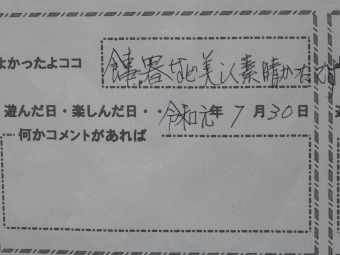 よかったよココ 食事、景色など美しく素晴かったです
遊んだ日・楽しんだ日・・令和元年7月30日
何かコメントがあれば